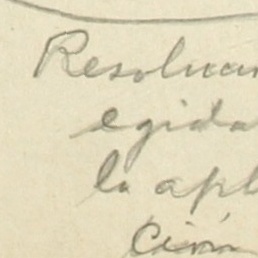 Resoluci
egida
la apl
ción